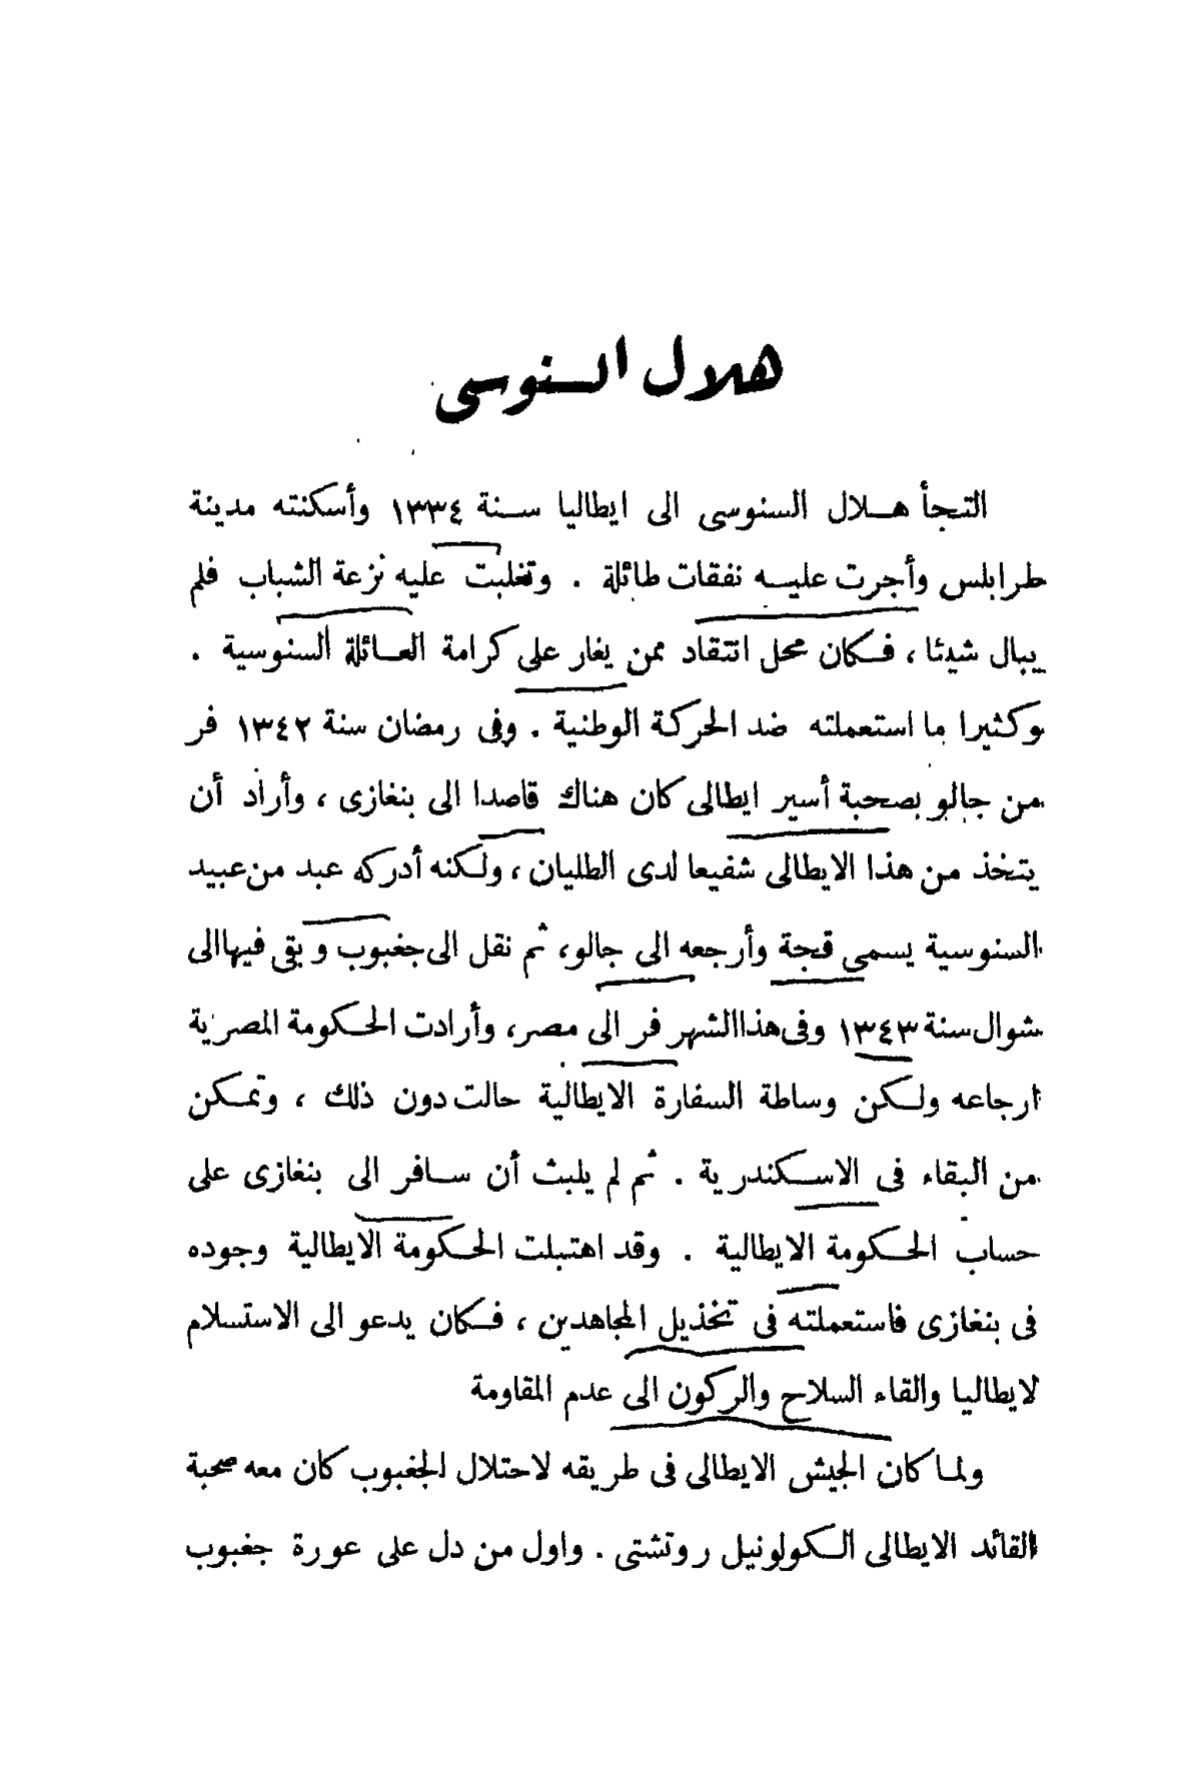 هلال السنوسى
التجأ هلال السنوسى الى ايطاليا سنة ١٣٣٤ وأسكنته مدينة
طرابلس وأجرت عليه نفقات طائلة . وتغلبت عليه نزعة الشباب فلم
يبال شيئا ، فكان محل انتقاد ممن يغار على كرامة العائلة السنوسية .
وكثيرا ما استعملته ضد الحركة الوطنية . وفى رمضان سنة ١٣٤٢ فر
من جالو بصحبة أسير ايطالى كان هناك قاصدا الى بنغازى ، وأراد أن
يتخذ من هذا الايطالى شفيعا لدى الطليان ، ولكنه أدركه عبد من عبيد
السنوسية يسمى قجة وأرجعه الى جالو، ثم نقل الى جغبوب وبقى فيها الى
شوال سنة ١٣٤٣ وفى هذا الشهر فر الى مصر، وأرادت الحكومة المصرية
ارجاعه ولكن وساطة السفارة الايطالية حالت دون ذلك ، وتمكن
من البقاء فى الاسكندرية . ثم لم يلبث أن سافر الى بنغازى على
حساب الحكومة الايطالية . وقد اهتبلت الحكومة الايطالية وجوده
فى بنغازى فاستعملته فى تخذيل المجاهدين ، فكان يدعو الى الاستسلام
لايطاليا والقاء السلاح والركون الى عدم المقاومة
ولما كان الجيش الايطالى فى طريقه لاحتلال الجغبوب كان معه صحبة
القائد الايطالى الكولونيل روتشتى . واول من دل على عورة جغبوب